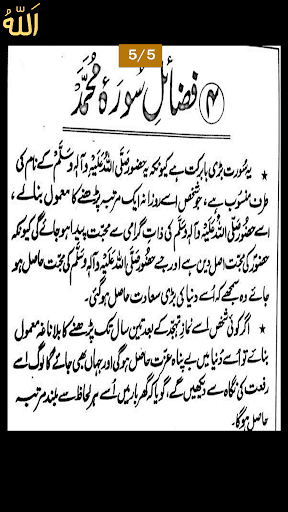 اَللّٰهُ
5/5
۴ فضائلِ سُورۂ مُحمَّد
* یہ سُورت بڑی بابرکت ہے کیونکہ یہ حضور صَلَّی اللّٰہُ عَلَیْہِ وَآلِہٖ وَسَلَّمْ کے نام کی
طرف منسوب ہے، جو شخص اسے روزانہ ایک مرتبہ پڑھنے کا معمول بنا لے،
اسے حضور صَلَّی اللّٰہُ عَلَیْہِ وَآلِہٖ وَسَلَّمْ کی ذات گرامی سے محبت پیدا ہو جائے گی کیونکہ
حضور کی محبت اصل دین ہے اور جسے حضور صَلَّی اللّٰہُ عَلَیْہِ وَآلِہٖ وَسَلَّمْ کی محبت حاصل ہو
جائے وہ سمجھے کہ اُسے دنیا کی بڑی سعادت حاصل ہو گئی۔
* اگر کوئی شخص اسے نمازِ تہجد کے بعد تین سال تک پڑھنے کا بلا ناغہ معمول
بنائے تو اُسے دُنیا میں بے پناہ عزت حاصل ہو گی اور جہاں بھی جائے گا لوگ اُسے
رفعت کی نگاہ سے دیکھیں گے، گویا کہ گھر بار میں اُسے ہر لحاظ سے بلند مرتبہ
حاصل ہو گا۔